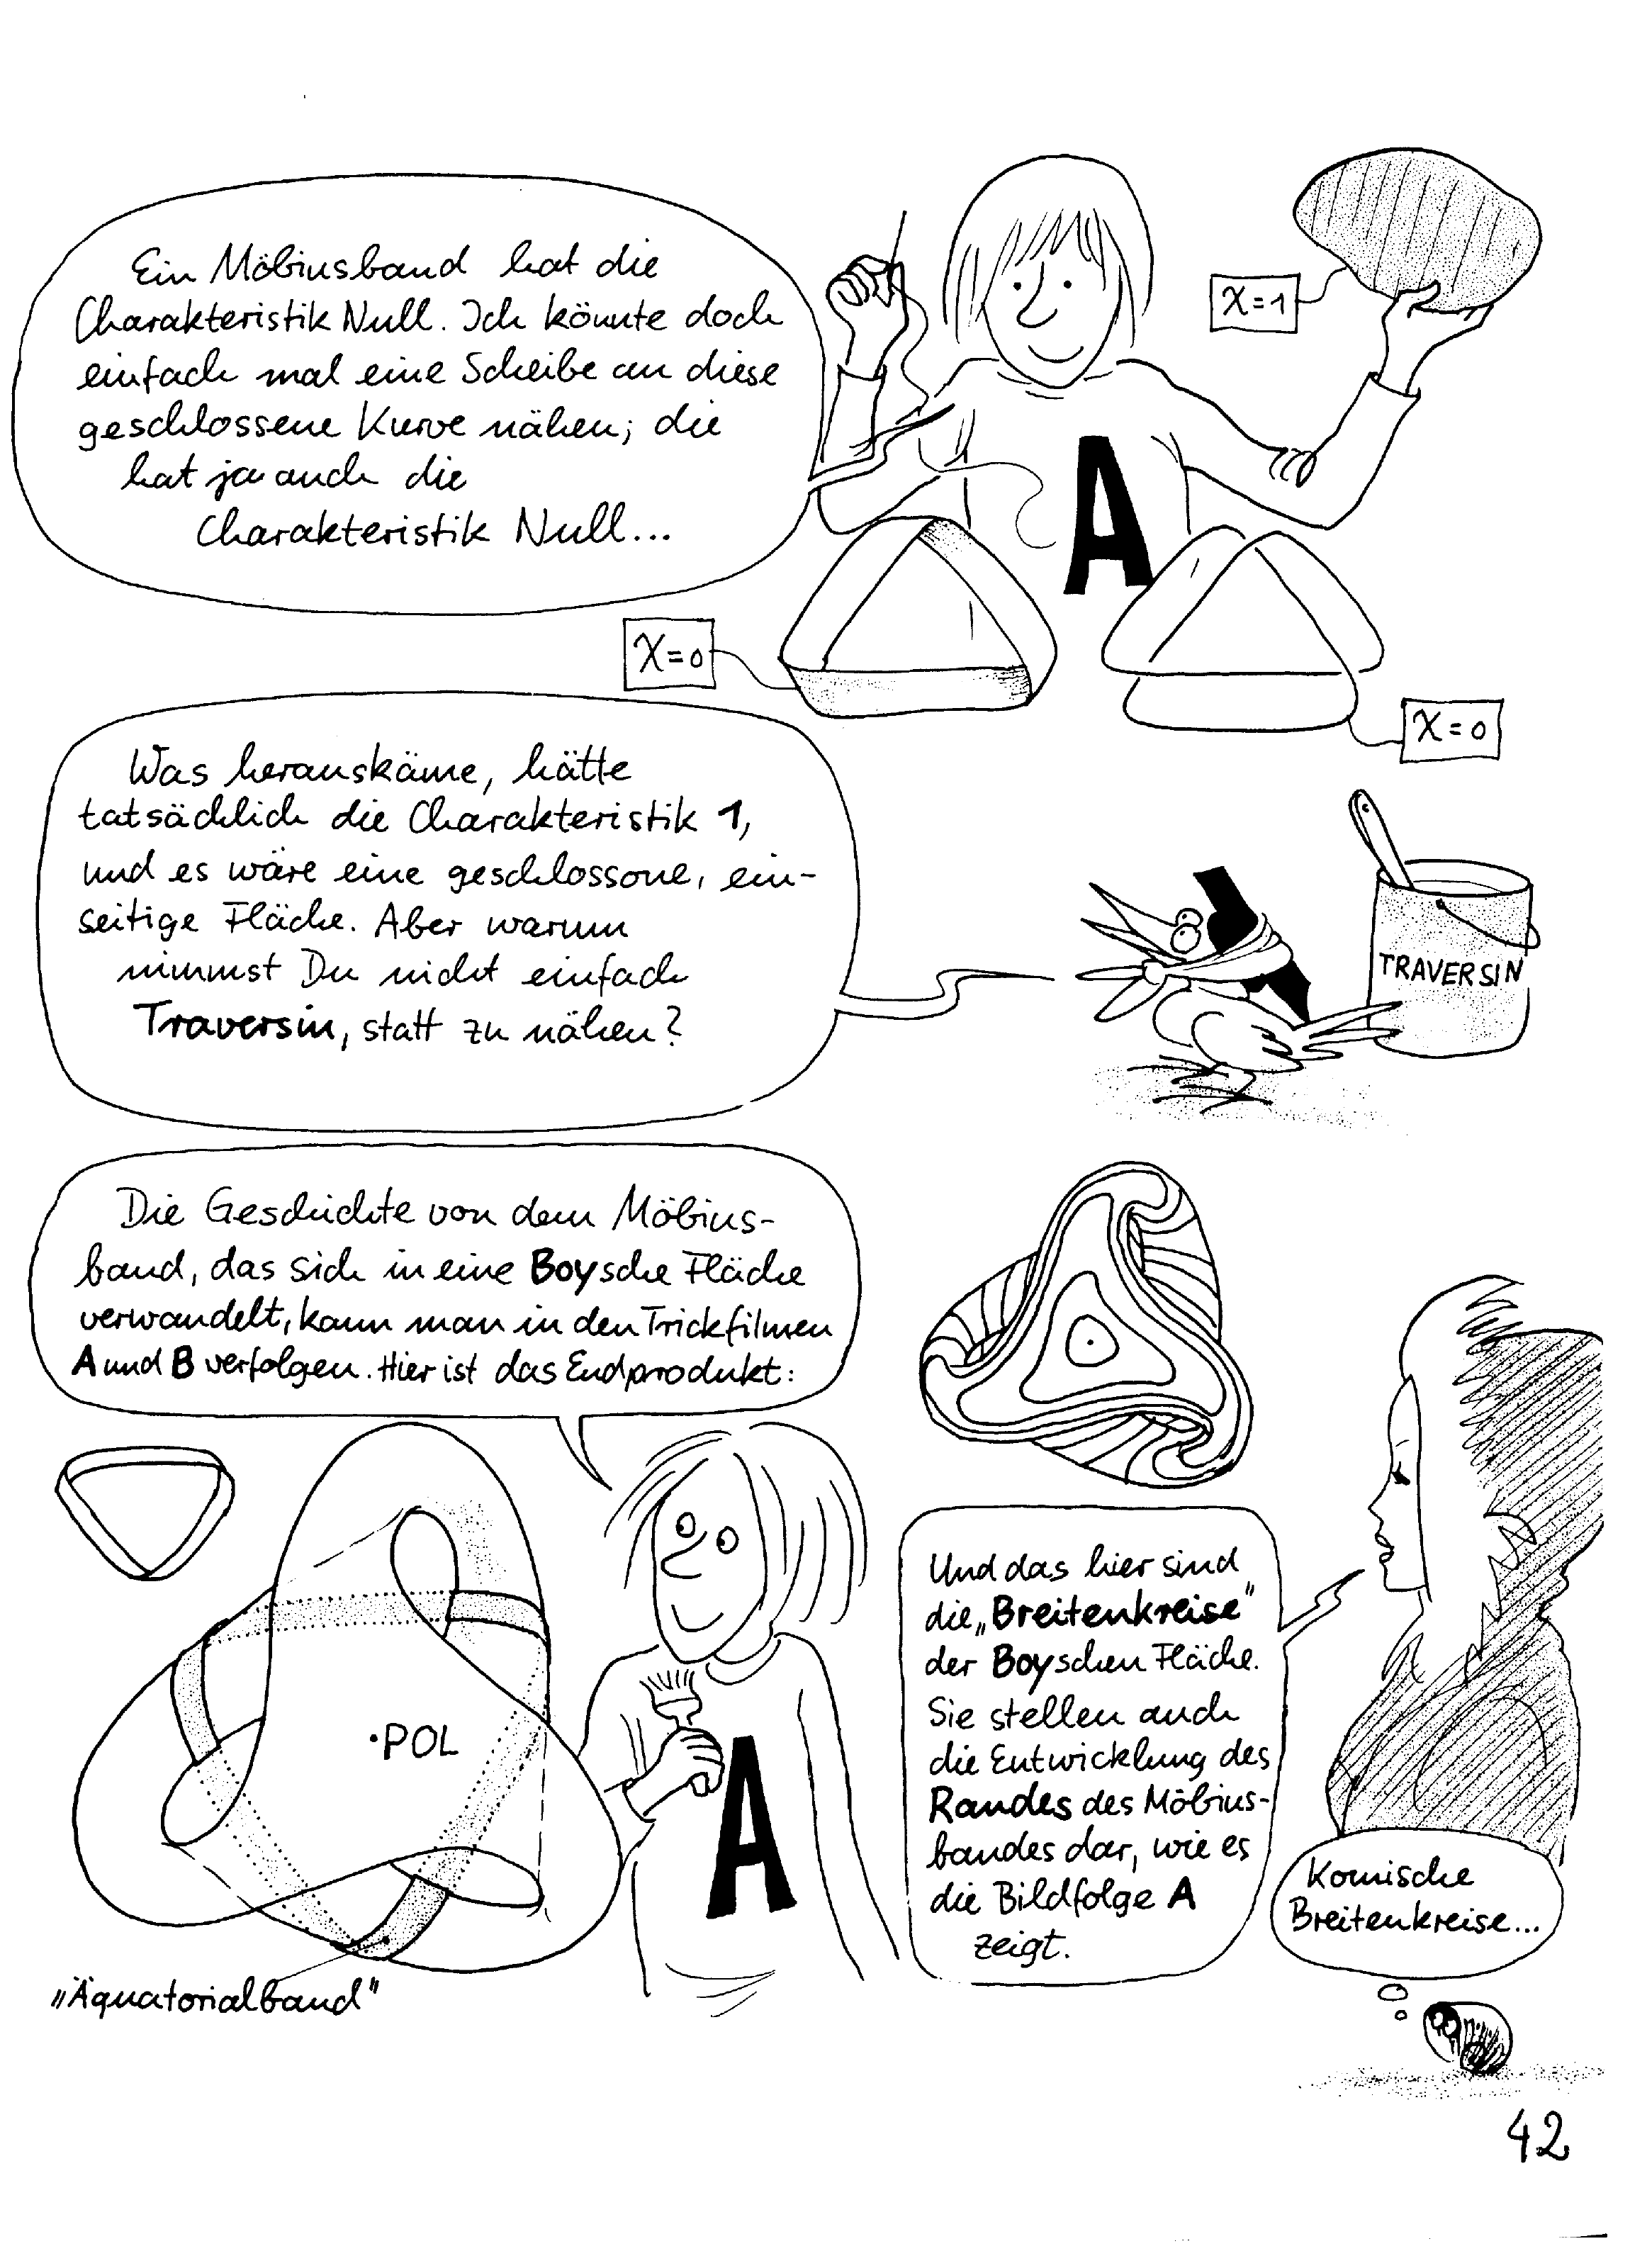 Ein Möbiusband hat die
Charakteristik Null. Ich könnte doch
einfach mal eine Scheibe an diese
geschlossene Kurve nähen; die
hat ja auch die
Charakteristik Null...
A
χ=1
χ=0
χ=0
Was herauskäme, hätte
tatsächlich die Charakteristik 1,
und es wäre eine geschlossone, ein-
seitige Fläche. Aber warum
nimmst Du nicht einfach
Traversin, statt zu nähen?
TRAVERSIN
Die Geschichte von dem Möbius-
band, das sich in eine Boysche Fläche
verwandelt, kann man in den Trickfilmen
A und B verfolgen. Hier ist das Endprodukt:
•POL
A
„Äquatorialband"
Und das hier sind
die „Breitenkreise"
der Boyschen Fläche.
Sie stellen auch
die Entwicklung des
Randes des Möbius-
bandes dar, wie es
die Bildfolge A
zeigt.
Komische
Breitenkreise...
42